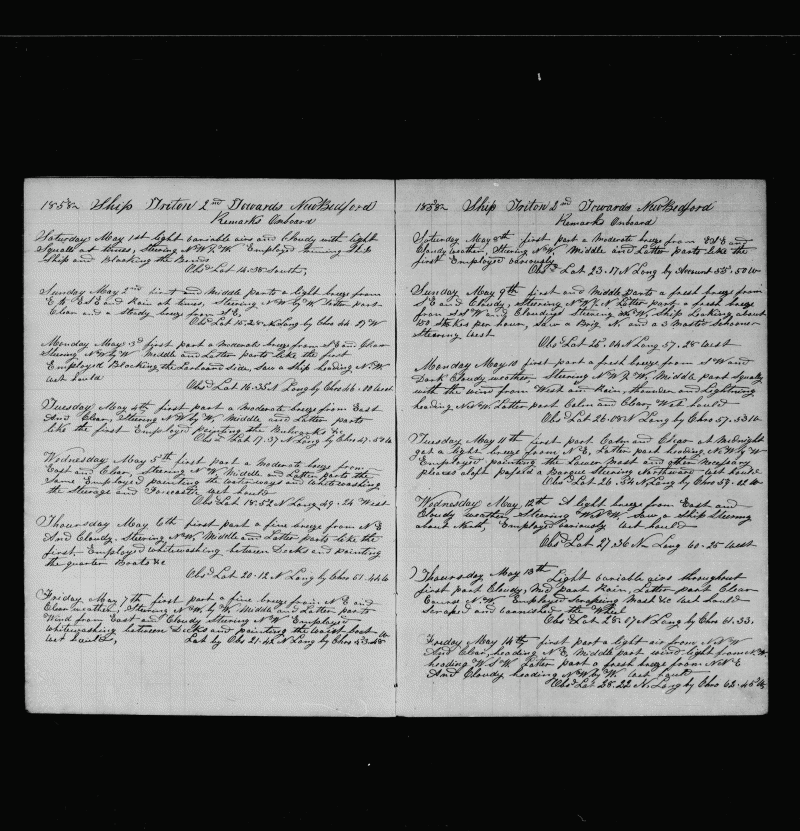 1858 Ship Triton 2nd Towards New Bedford
Remarks Onboard
Saturday May 1st light variable airs and Cloudy with light
Squalls at times, Stering N W & W. Employed tarring Ship
Ship and Blacking the Bends
Obsd Lat 14.38
Sunday May 2nd first and Middle parts a light breeze from
E to E S E and Rain at times, Steering N W by W. latter part
Clear and a steady breeze from S E,
Obsd Lat 15.28 N Long by Chro 44. W
Monday May 3d first part a moderate breeze from N E and Clear
Stering N W by W Middle and Latter parts like the first
Employed Blacking the Larboard side, saw a Ship heading N. W
wet hould
Obsd Lat 16.35 N Long by Chro 46. West
Tuesday May 4th first part a Moderate breeze from East
And Clear, Steering N W by W, Middle and Latter parts
like the first Employed painting the Bulwarks &c
Obsd Lat 17.37 N Long by Chro 47.
Wednesday May 5th first part a moderate breeze from
East and Clear, Steering N W Middle and Latter parts the
Same Employed painting the waterways and Whitewashing
the Steerage and Forecastle wet hould
Obsd Lat 18.52 N Long 49. 24 West
Thoursday May 6th first part a fine breeze from N E
And Cloudy. Steering N W, Middle and Latter parts like the
first, Employed whitewashing between Decks and painting
the quarter Boats &c
Obsd Lat 20.12 N Long by Chro 51.44 W
Friday May 7th first part a fine breeze from N E and
Clear weather, Steering N W, by W, Middle and Latter parts
Wind from East and Cloudy Stering N W Employed
Whitewashing between Decks and painting the waist boat
Wet hould, Lat by Obs 21.42 N Long by Chro 53.48 W
1858 Ship Triton 2nd Towards New Bedford
Remarks Onboard
Saturday May 8th first part a Moderate breeze from E S E and
Cloudy weather, Stering N W, Middle and Latter parts like the
first Employed variously
Obsd Lat 23.17 N Long by Account 55.50 W
Sunday May 9th first and Middle parts a fresh breeze from
S E and Cloudy, Steering N W & N Latter part a fresh breeze
from S S W and Cloudy Stering W, Ship Leaking about
150 Strokes per hour, saw a Brig N, and a 3 Master Schooner
Steering West
Obsd Lat 25. 04 N Long 57. 28 West
Monday May 10 first part a fresh breeze from S W and
Dark Cloudy weather, Stering N W & W, Middle part Squally
with the wind from West and Rain, thunder and Lightning
heading N W Latter part Calm and Clear, Wet hould
Obsd Lat 26.08 N Long by Chro 57.53 W
Tuesday May 11th first part Calm and Clear at Midnight
got a light breeze from N E, Latter part heading N W by W
Employed painting the Lower Mast and other necessary
places aloft passed a Barque Steering Northward wet hould
Obsd Lat 26. 34 N Long by Chro 59.12 W
Wednesday May, 12th A light breeze from East and
Cloudy weather, Steering W N W. Saw a Ship Steering
about North, Employed variously Wet hould
Obsd Lat 27.36 N Long 60.25 West
Thoursday May 13th
Light Variable airs throughout
first part Cloudy, Mid part Rain, Latter part Clear
Course N. W Employed Scraping Mast &c Wet hould
Scraped and varnished the Wheel
Obsd Lat 28.07 N Long by Chro 61.33.
Friday May 14th first part a light air from N W
And Clear, heading N E, Middle part wind light from N W
heading W S W, Latter part a fresh breeze from N N E
And Cloudy heading N W by W. Wet hould
Obsd Lat 28.22 N, Long by Chro 62.45 W